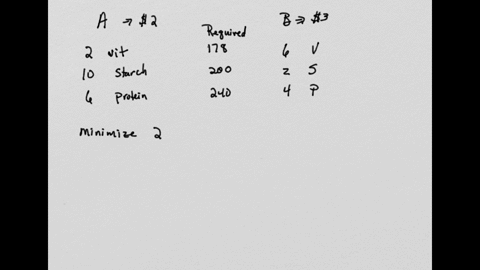 A → $2 B ⇒ $3
Required
2 vit 178 6 V
10 Starch 200 2 S
6 Protein 240 4 P
Minimize 2